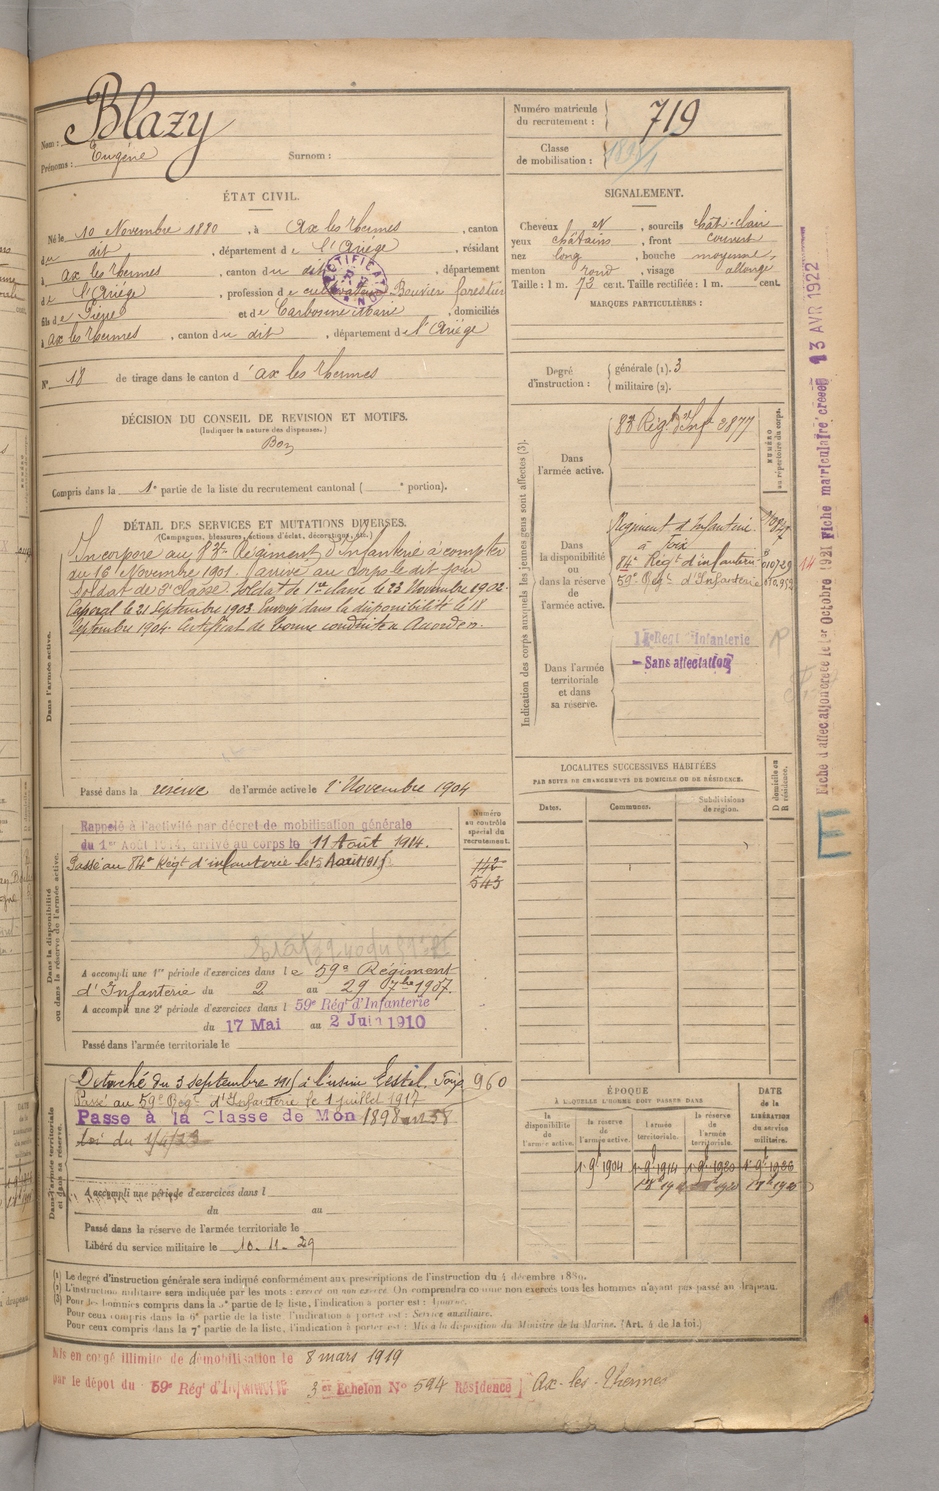 Nom : Blazy
Prénoms : Eugène Surnom :
Numéro matricule
du recrutement : 719
Classe
de mobilisation :
ÉTAT CIVIL.
Né le 10 Novembre 1880, à Ax les Thermes, canton
du dit, département de l'Ariège, résidant
à Ax les Thermes, canton du dit, département
de l'Ariège, profession de cultivateur Bouvier forestier
fils de Pierre et de Carbonne Marie, domiciliés
à Ax les Thermes, canton du dit, département de l'Ariège
N° 18 de tirage dans le canton d'Ax les Thermes
RECTIFICATION
SIGNALEMENT.
Cheveux et, sourcils chât. clair
yeux châtains, front couvert
nez long, bouche moyenne,
menton rond, visage allongé
Taille : 1 m. 73 cent. Taille rectifiée : 1 m. cent.
MARQUES PARTICULIÈRES :
Degré
d'instruction :
générale (1). 3
militaire (2).
DÉCISION DU CONSEIL DE REVISION ET MOTIFS.
(Indiquer la nature des dispenses.)
Bon
Compris dans la 1e partie de la liste du recrutement cantonal ( e portion).
DÉTAIL DES SERVICES ET MUTATIONS DIVERSES.
(Campagnes, blessures, actions d'éclat, décorations, etc.)
Dans l'armée active.
Incorporé au 83e Régiment d'Infanterie à compter
du 16 Novembre 1901. arrivé au corps le dit jour
Soldat de 2e classe. Soldat de 1ere classe le 23 Novembre 1902.
Caporal le 21 Septembre 1903. Envoyé dans la disponibilité le 18
Septembre 1904. Certificat de bonne conduite Accordé.
Passé dans la réserve de l'armée active le 1er Novembre 1904
Indication des corps auxquels les jeunes gens sont affectés (3).
NUMÉRO
au répertoire du corps.
Dans
l'armée active.
83e Régt d'Inf. 3877
Dans
la disponibilité
ou
dans la réserve
de
l'armée active.
Régiment d'Infanterie
à Foix
84e Régt d'infanterie
59e Régt d'Infanterie
Dans l'armée
territoriale
et dans
sa réserve.
Régt Infanterie
Sans affectation
LOCALITÉS SUCCESSIVES HABITÉES
PAR SUITE DE CHANGEMENTS DE DOMICILE OU DE RÉSIDENCE.
Dates. Communes. Subdivisions
de région.
D domicile ou
R résidence.
Dans la disponibilité
ou dans la réserve de l'armée active.
Numéro
au contrôle
spécial du
recrutement.
Rappelé à l'activité par décret de mobilisation générale
du 1er Août 1914, arrivé au corps le 11 Août 1914.
Passé au 84e Régt d'infanterie le 15 Août 1915.
142
543
A accompli une 1re période d'exercices dans le 59e Régiment
d'Infanterie du 2 au 29 7bre 1907.
A accompli une 2e période d'exercices dans l 59e Régt d'Infanterie
du 17 Mai au 2 Juin 1910
Passé dans l'armée territoriale le
Dans l'armée territoriale
et dans sa réserve.
Détaché du 3 septembre 1915 à l'usine Foix 960
Passé au 59e Régt d'Infanterie le 1 juillet 1917
Passé à la Classe de Mon 1898 art 58
Loi du 1/4/23
A accompli une période d'exercices dans l
du au
Passé dans la réserve de l'armée territoriale le
Libéré du service militaire le 10. 11. 29
ÉPOQUE
À LAQUELLE L'HOMME DOIT PASSER DANS
DATE
de la
LIBÉRATION
du service
militaire.
la
disponibilité
de
l'armée active.
la réserve
de
l'armée active.
l'armée
territoriale.
la réserve
de
l'armée
territoriale.
1er 9bre 1904 1er 9bre 1914 1er 9bre 1920 1er 9bre 1926
(1) Le degré d'instruction générale sera indiqué conformément aux prescriptions de l'instruction du 4 décembre 1889.
(2) L'instruction militaire sera indiquée par les mots : exercé ou non exercé. On comprendra comme non exercés tous les hommes n'ayant pas passé au drapeau.
(3) Pour les hommes compris dans la 5e partie de la liste, l'indication à porter est : Ajourné.
Pour ceux compris dans la 6e partie de la liste, l'indication à porter est : Service auxiliaire.
Pour ceux compris dans la 7e partie de la liste, l'indication à porter est : Mis à la disposition du Ministre de la Marine. (Art. 4 de la loi.)
Mis en congé illimité de démobilisation le 8 mars 1919
par le dépôt du 59e Régt d'Infanterie 3 er Echelon N° 594 Résidence Ax-les-Thermes
Fiche d'affectation créée le 1er Octobre 1921 Fiche matriculaire créée 13 AVR 1922
E